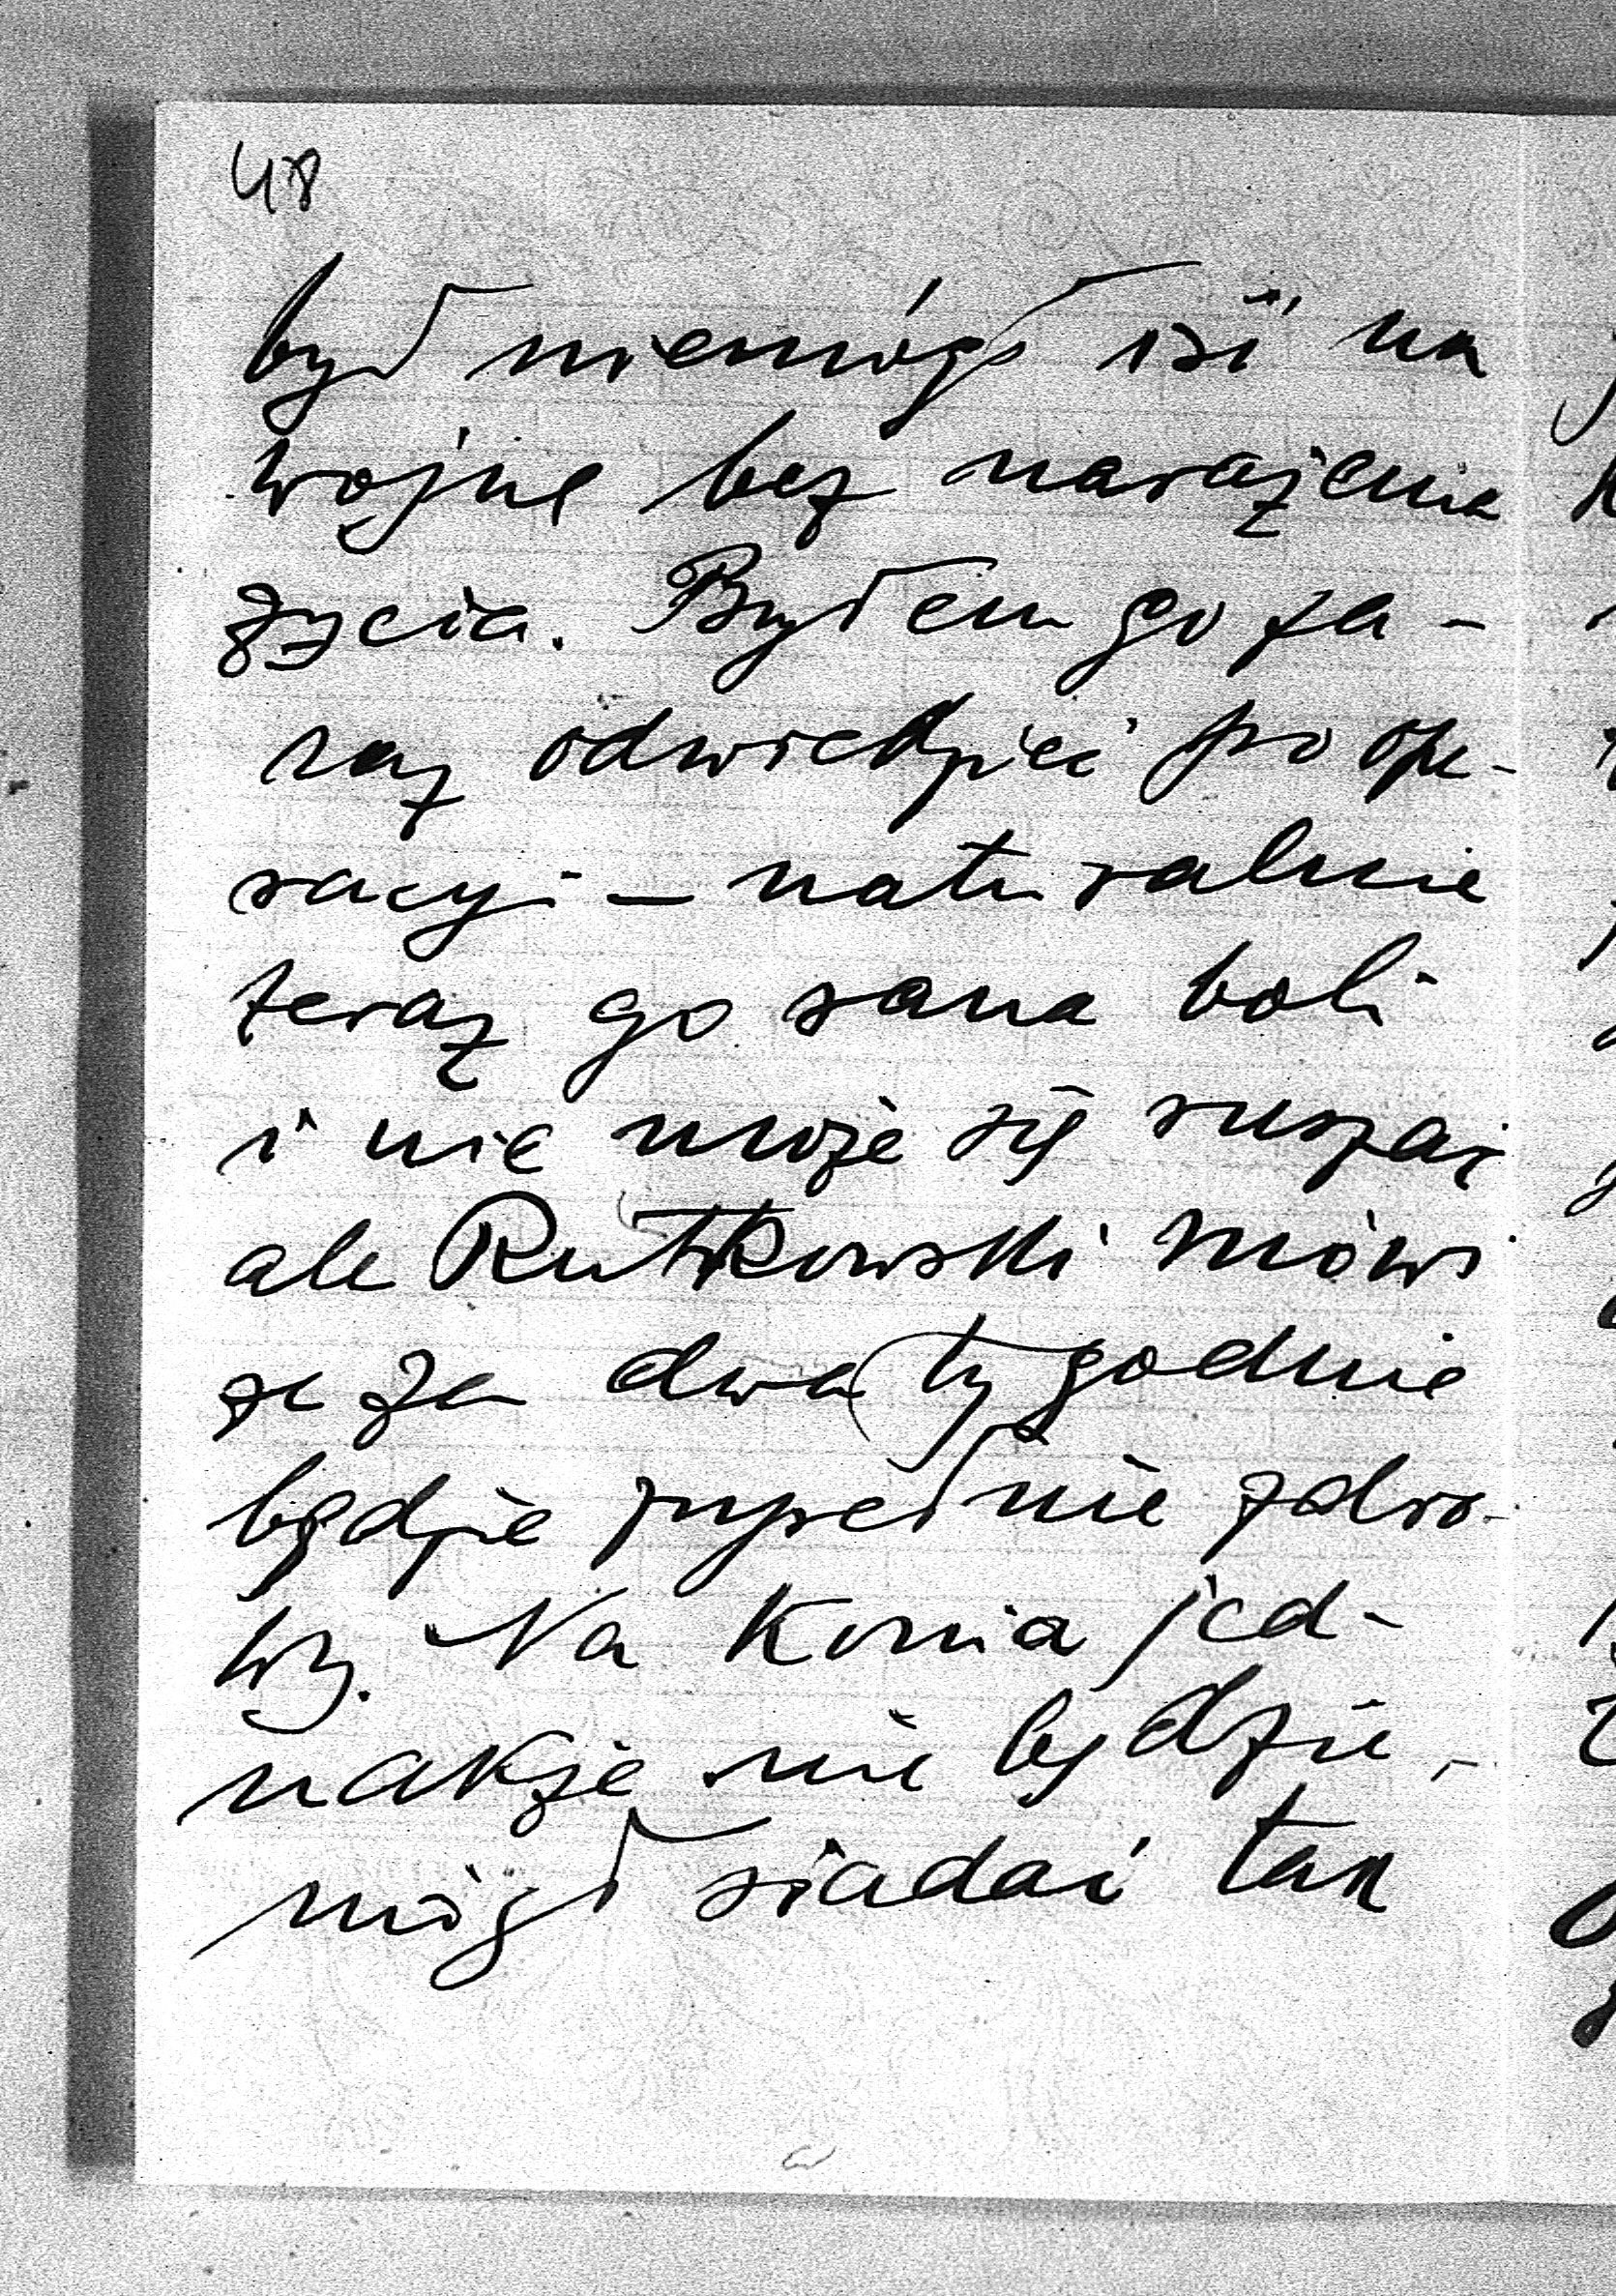 48
był niemógł iść na
wojnę bez narażenia
życia. Byłem go za-
raz odwiedzieć po ope-
racyi – naturalnie
teraz go rana boli
i nie może się ruszać
ale Rutkowski mówi
że za dwa tygodnie
będzie zupełnie zdro-
wy. Na konia jed-
nakże nie będzie
mógł siadać tak